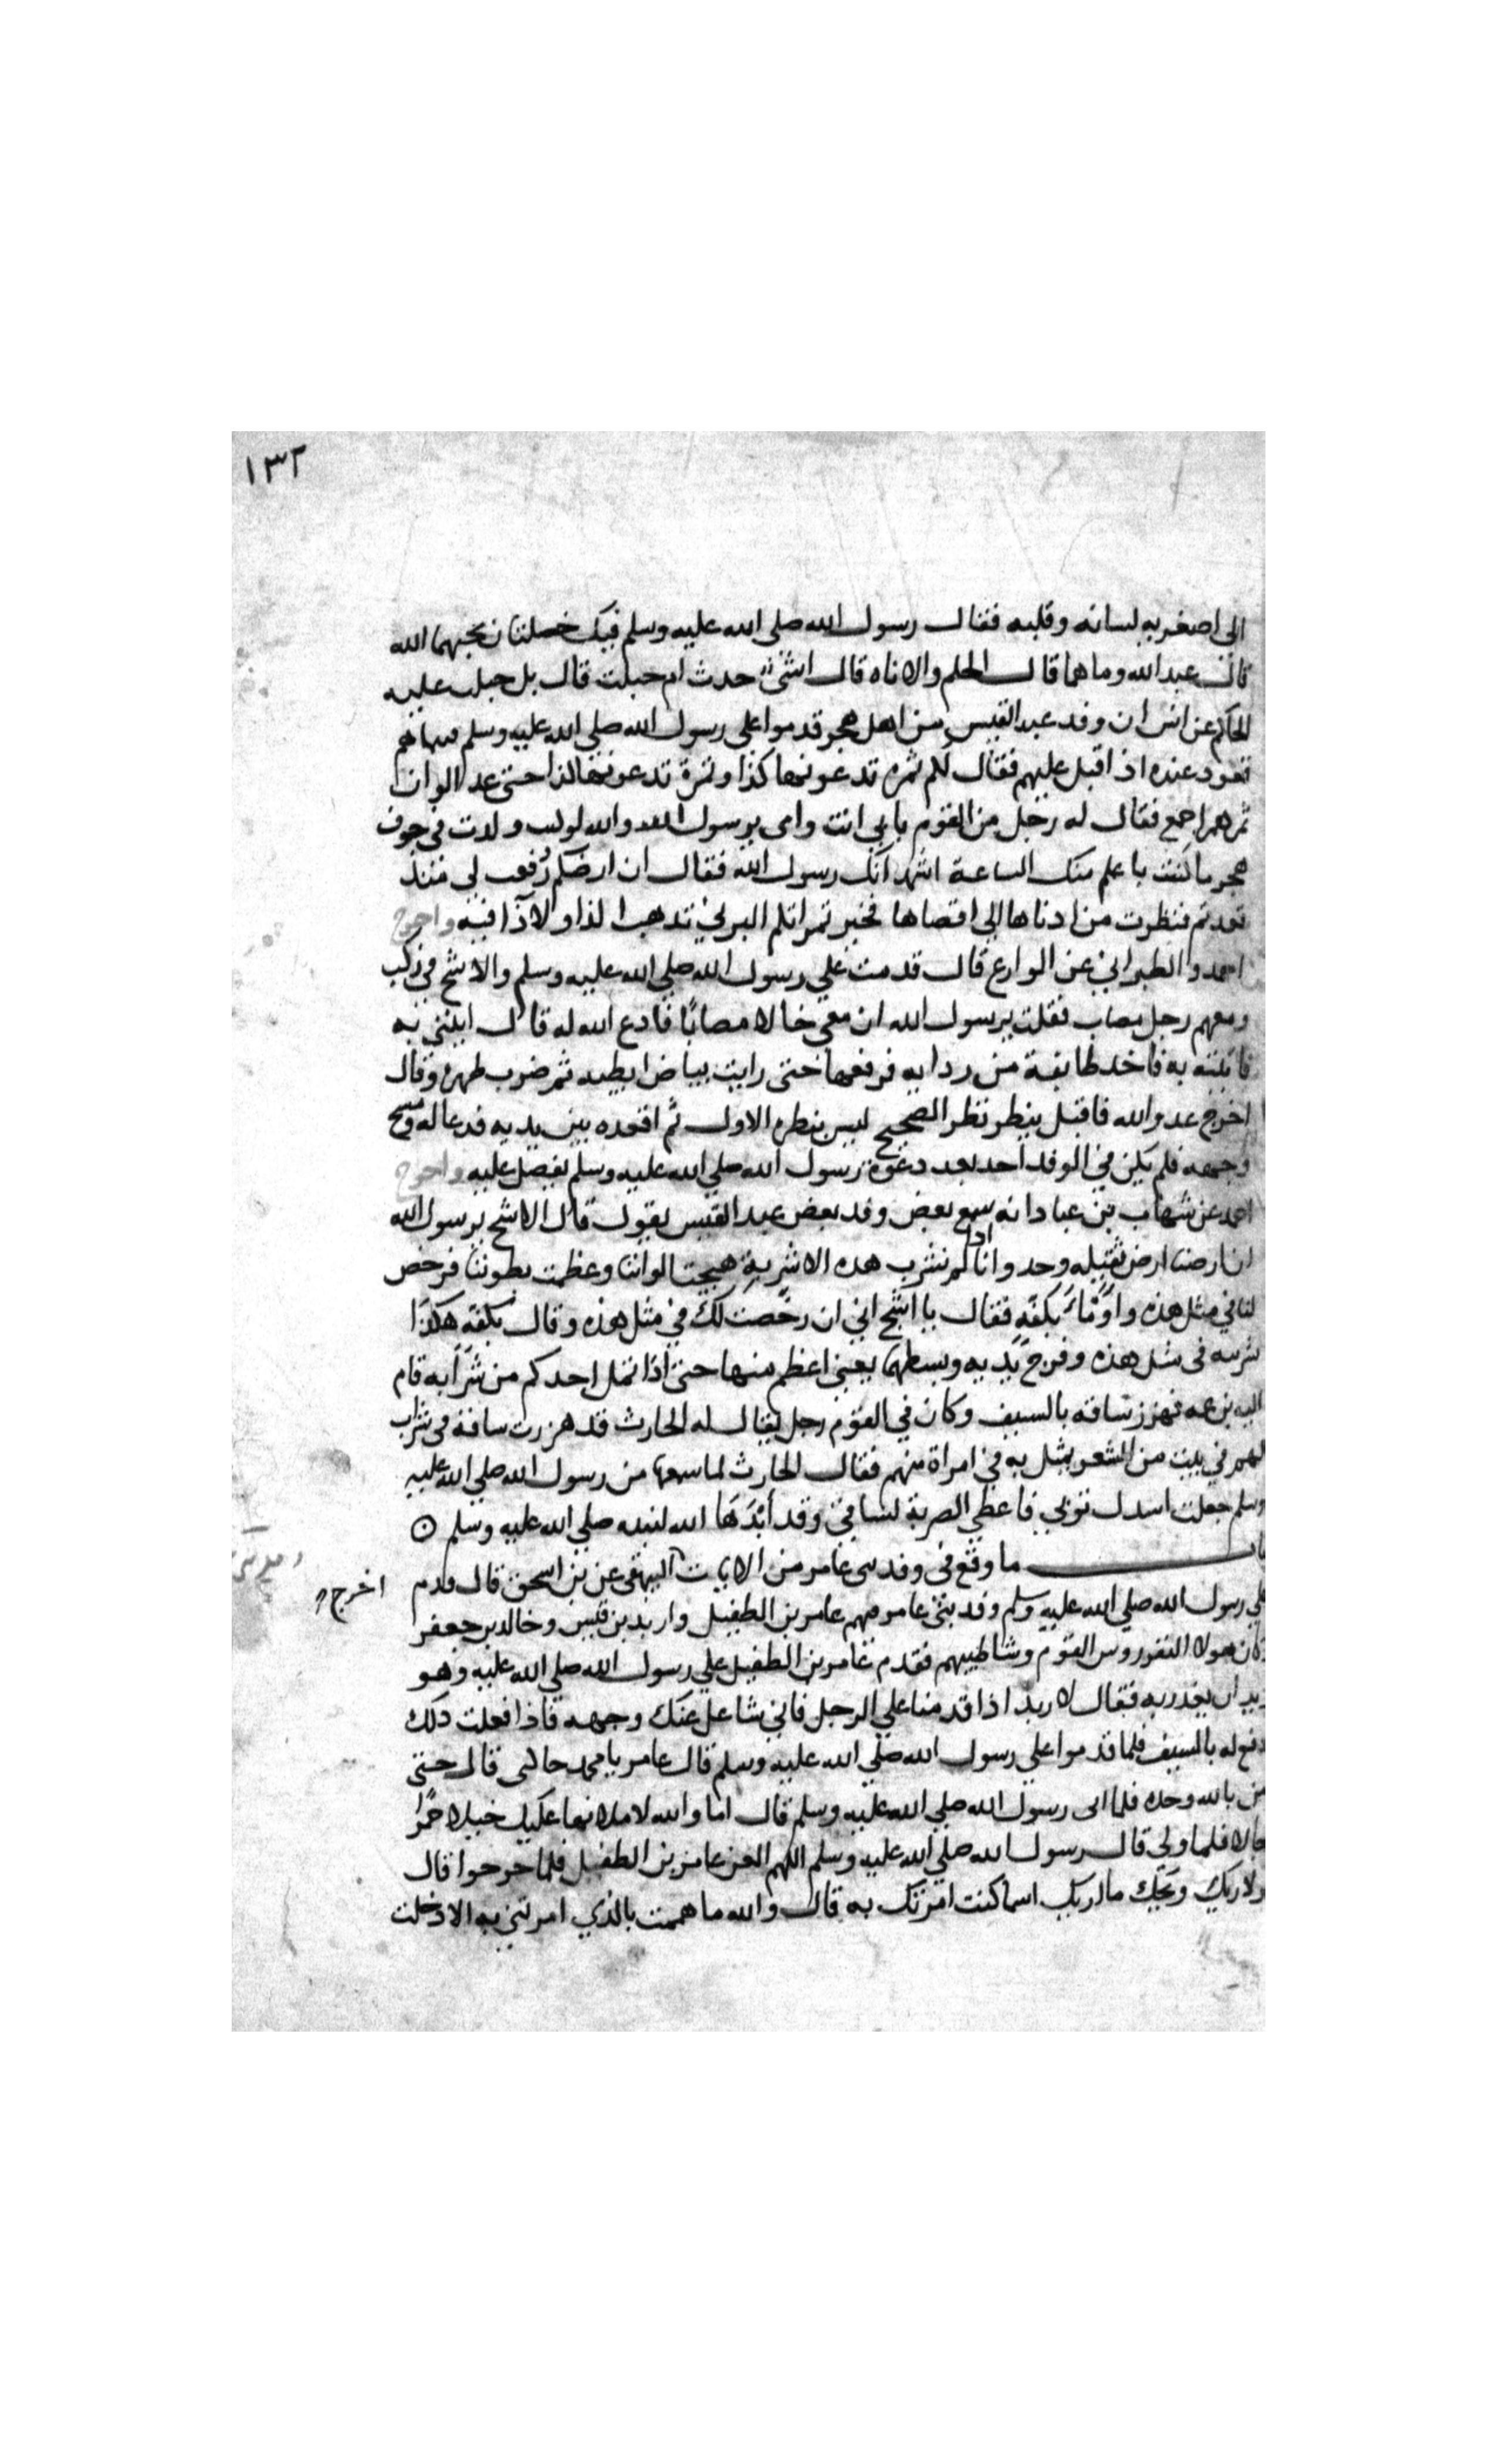 ١٣٢
الى اصغريه لسانه وقلبه فقال رسول الله صلى الله عليه وسلم فيك خصلتان يحبهما الله
قال عبد الله وما هما قال الحلم والاناه قال اشئ حدث ام جبلت قال بل جبلت عليه
الحاكم عن انس ان وفد عبد القيس من اهل هجر قدموا على رسول الله صلى الله عليه وسلم فبينما هم
قعود عنده اذ اقبل عليهم فقال لكم تمره تدعونها كذا وتمرة تدعونها كذا حتى عد الوان
تمرهم اجمع فقال له رجل من القوم بابي انت وامى يرسول الله والله لو كنت ولدت في جوف
هجر ما كنت باعلم منك الساعة اشهد انك رسول الله فقال ان ارضكم رفعت لى منذ
قعدتم فنظرت من ادناها الى اقصاها فخير تمراتكم البرني تذهب الدا ولا دا فيه واخرج
احمد والطبراني عن الوازع قال قدمت علي رسول الله صلي الله عليه وسلم والاشج في ركب
ومعهم رجل مصاب فقلت يرسول الله ان معي خالا مصابا فادع الله له قال ايتني به
فاتيته به فاخد طايفة من ردايه فرفعها حتى رايت بياض ابطيه ثم ضرب ظهره وقال
اخرج عدو الله فاقبل ينظر نظر الصحيح ليس بنظره الاول ثم اقعده بين يديه فدعا له ومسح
وجهه فلم يكن في الوفد احد بعد دعوة رسول الله صلي الله عليه وسلم يفضل عليه واخرج
احمد عن شهاب بن عباد انه سمع بعض وفد بعض عبد القيس يقول قال الاشج يرسول الله
ان ارضنا ارض ثقيله وحد وانا اذا لم نشرب هده الاشربة هيجت الواننا وعظمت بطوننا فرخص
لنا في مثل هذه واومأ بكفه فقال يا اشج اني ان رخصت لك في مثل هذه وقال بكفه هكذا
شربته فى مثل هذه وفرج يديه وبسطهما يعني اعظم منها حتى اذا ثمل احدكم من شرابه قام
اليه بن عمه فهزر ساقه بالسيف وكان في القوم رجل يقال له الحارث قد هزرت ساقه في شراب
لهم في بيت من الشعر يمثل به في امراة منهم فقال الحارث لما سمعها من رسول الله صلي الله عليه
وسلم جعلت اسدل ثوبي فاغطي الضربة لساقي وقد ابداها الله لنبيه صلي الله عليه وسلم
باب ما وقع فى وفد بنى عامر من الايات البيهقى عن بن اسحق قال قدم
اخرج
علي رسول الله صلي الله عليه وسلم وفد بنى عامر فيهم عامر بن الطفيل واربد بن قيس وخالد بن جعفر
وكان هولا النفر روس القوم وشياطينهم فقدم عامر بن الطفيل علي رسول الله صلي الله عليه وهو
يريد ان يغدر به فقال لاربد اذا قدمنا علي الرجل فاني شاغل عنك وجهه فاذا فعلت ذلك
فاعله بالسيف فلما قدموا علي رسول الله صلي الله عليه وسلم قال عامر يا محمد خالنى قال حتى
تومن بالله وحده فلما ابى رسول الله صلي الله عليه وسلم قال اما والله لاملانها عليك خيلا حمرا
ورجالا فلما ولي قال رسول الله صلي الله عليه وسلم اللهم العن عامر بن الطفيل فلما خرجوا قال
لاربد ويحك يا اربد اين ما كنت امرتك به قال والله ما هممت بالذي امرتني به الا دخلت